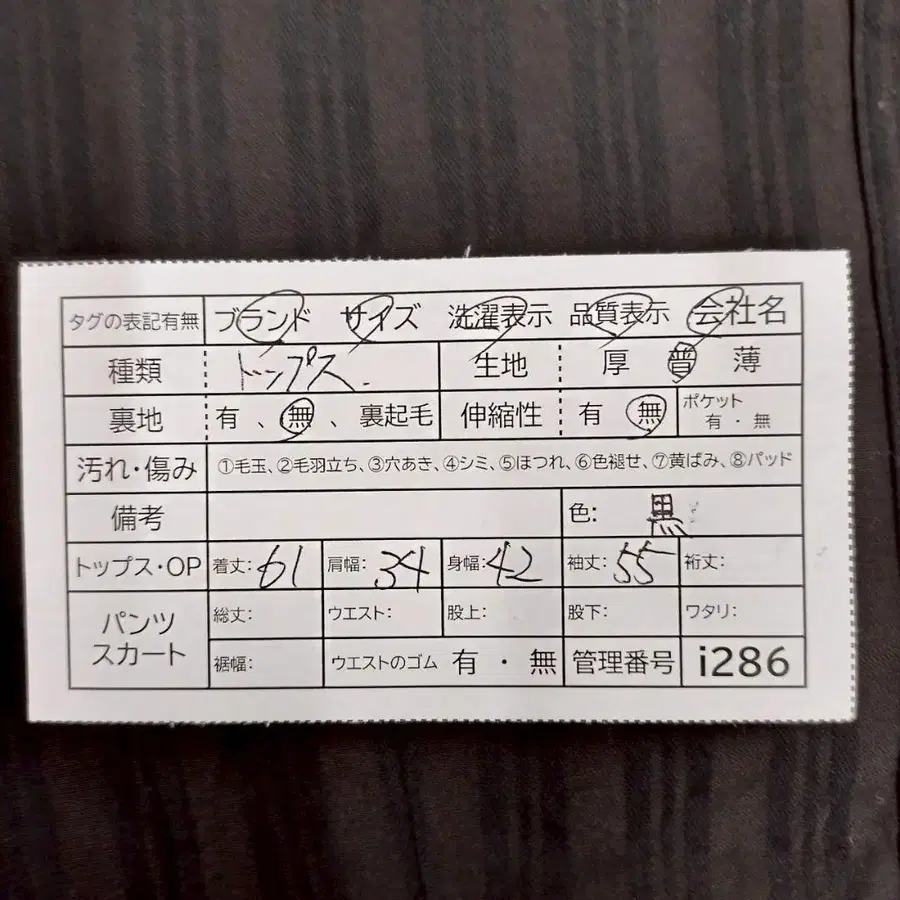 タグの表記有無 ブランド サイズ 洗濯表示 品質表示 会社名
種類 トップス 生地 厚 普 薄
裏地 有、無、裏起毛 伸縮性 有 無 ポケット 有・無
汚れ・傷み ①毛玉、②毛羽立ち、③穴あき、④シミ、⑤ほつれ、⑥色褪せ、⑦黄ばみ、⑧パッド
備考 色: 黒
トップス・OP 着丈: 61 肩幅: 34 身幅: 42 袖丈: 55 裄丈:
パンツ スカート 総丈: ウエスト: 股上: 股下: ワタリ:
裾幅: ウエストのゴム 有・無 管理番号 i286